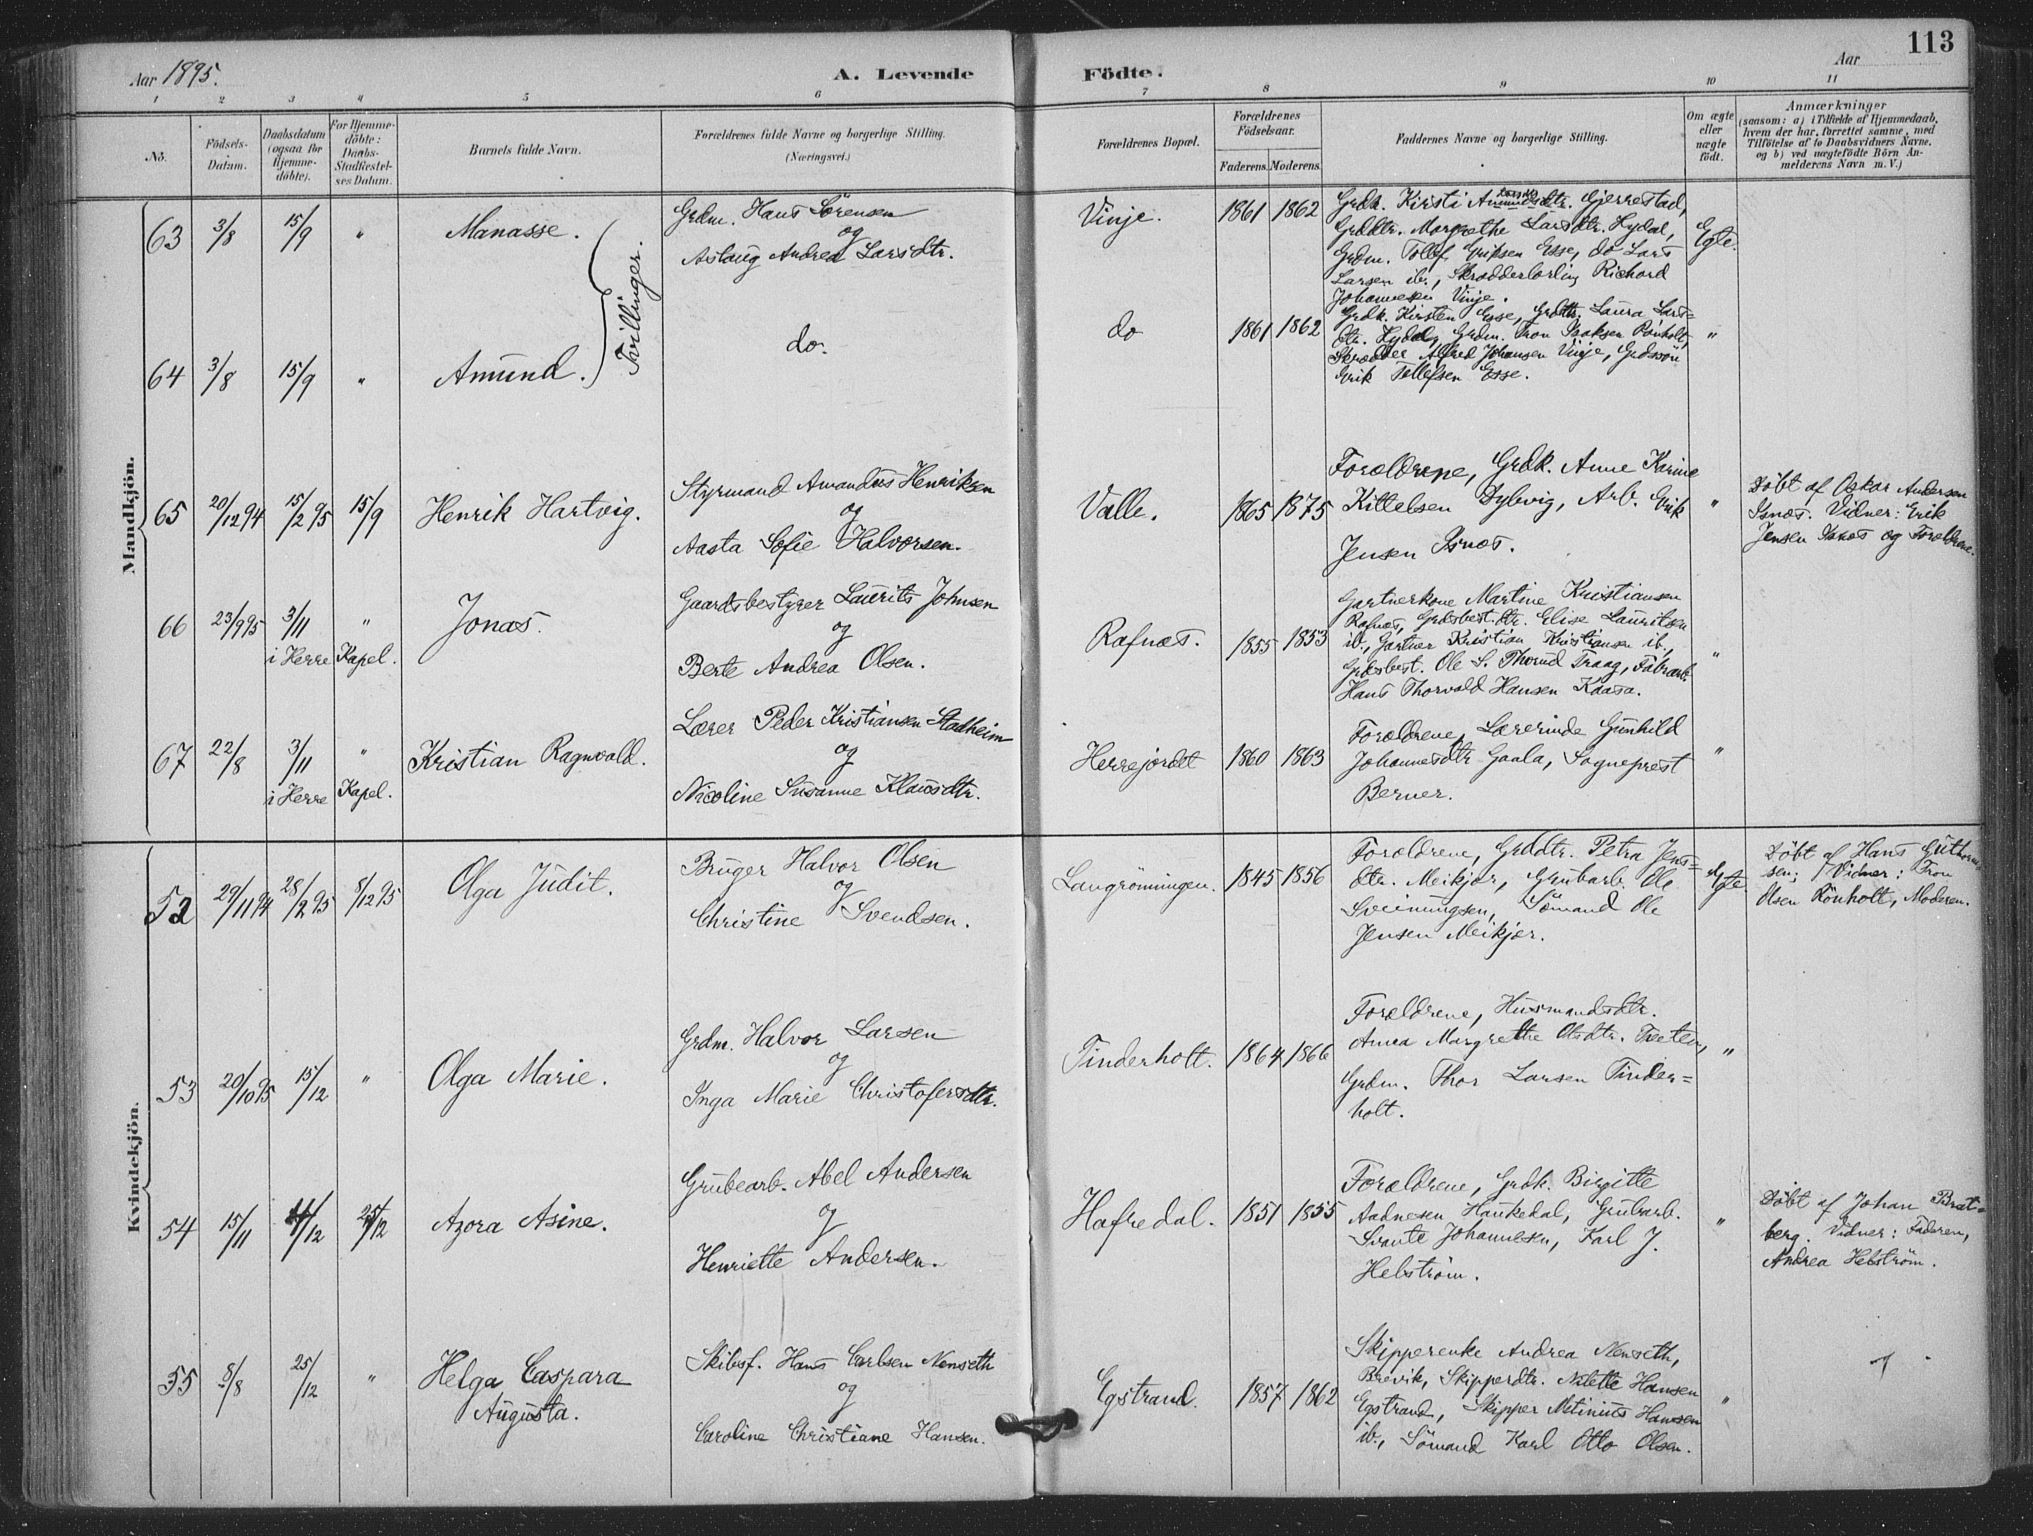 Aar 1895.
A. Levende
Födte.
Aar
113
1 2 3 4 5 6 7 8 9 10 11
No.
Födsels-
Datum.
Daabsdatum
(ogsaa for
Hjemme-
döbte).
For Hjemme-
döbte:
Daabs-
Stadfæstel-
ses Datum.
Barnets fulde Navn.
Forældrenes fulde Navne og borgerlige Stilling.
(Næringsvei.)
Forældrenes Bopæl.
Forældrenes
Födselsaar.
Faderens. Moderens.
Faddernes Navne og borgerlige Stilling.
Om ægte
eller
uægte
født.
Anmærkninger
(saasom: a) i Tilfælde af Hjemmedaab,
hvem der har forrettet samme, med
Tilföielse af to Daabsvidners Navne,
og b) ved uægtefödte Börn An-
melderens Navn m. V.)
Mandkjön.
63 3/8 15/9 " Manasse.
Tvillinger.
Grdm. Hans Sörensen
og
Aslaug Andrea Larsdtr.
Vinje. 1861 1862
Grdk. Kirsti Gjerrestad,
Grddtr. Margrethe Larsdtr. Lydal,
Grdm. Tollef Eriksen Esse, do Lars
Larsen ib., Skrædderlærling Richard
Johannesen Vinje.
Egte.
64 3/8 15/9 " Amund.
do.
do 1861 1862
Grdk. Kirsten Esse, Grddtr. Laura Lars-
dtr. Lydal, Grdm. Tron Isaksen Rönholt,
Skrædder Alfred Johansen Vinje, Grdssön
Erik Tollefsen Esse.
"
65 20/12 94 15/2 95 15/9 Henrik Hartvig.
Styrmand Amandus Henriksen
og
Aasta Sofie Halvorsen.
Valle. 1865 1875
Forældrene, Grdk. Anne Karine
Kittelsen Dybvig, Arb. Erik
Jensen Isnæs.
"
Döbt af Oskar Andersen
Isnæs. Vidner: Erik
Jensen Isnæs og Forældrene.
66 23/9 95 3/11 "
i Herre Kapel.
Jonas.
Gaardsbestyrer Laurits Johnsen
og
Berte Andrea Olsen.
Rafnæs. 1855 1853
Gartnerkone Martine Kristiansen
Rafnæs, Grdsbest.dtr. Elise Lauritsen
ib., Gartner Kristian Kristiansen ib.,
Grdsbest. Ole S. Thorud Traag, Fabrarb.
Hans Thorvald Hansen Kaasa.
"
67 22/8 3/11 "
i Herre Kapel.
Kristian Ragnvald.
Lærer Peder Kristiansen Stadheim
og
Nicoline Susanne Klausdtr.
Herrejordet 1860 1863
Forældrene, Lærerinde Gunhild
Johannesdtr Gaala, Sogneprest
Berner.
"
Kvindekjön.
52 29/11 94 28/2 95 8/12 95 Olga Judit.
Bruger Halvor Olsen
og
Christine Svendsen.
Langrönningen. 1845 1856
Forældrene, Grddtr. Petra Jens-
dtr. Meikjær, Grubarb. Ole
Sveinungsen, Sömand Ole
Jensen Meikjær.
Egte
Döbt af Hans Guthorm-
sen; Vidner: Tron
Olsen Rönholt, Moderen.
53 20/10 95 15/12 " Olga Marie.
Grdm. Halvor Larsen
og
Inga Marie Christofersdtr.
Tinderholt. 1864 1866
Forældrene, Husmandsdtr.
Anna Margrethe Olsdtr. Tveten,
Grdm. Thor Larsen Tinder-
holt.
"
54 15/11 /12 25/12 Azora Asine.
Grubearb. Abel Andersen
og
Henriette Andersen.
Hafredal. 1851 1855
Forældrene, Grdk. Birgitte
Aadnesen Haukedal, Grubarb.
Svante Johannesen, Karl J.
Helström.
"
Döbt af Johan Brat-
berg. Vidner: Faderen,
Andrea Helström.
55 8/8 25/12 " Helga Caspara
Augusta.
Skibsf. Hans Carlsen Nenseth
og
Caroline Christiane Hansen.
Egstrand. 1857 1862
Skipperenke Andrea Nenseth,
Brevik, Skipperdtr. Nilette Hansen
Egstrand, Skipper Hansen
ib., Sömand Karl Otto Olsen.
"